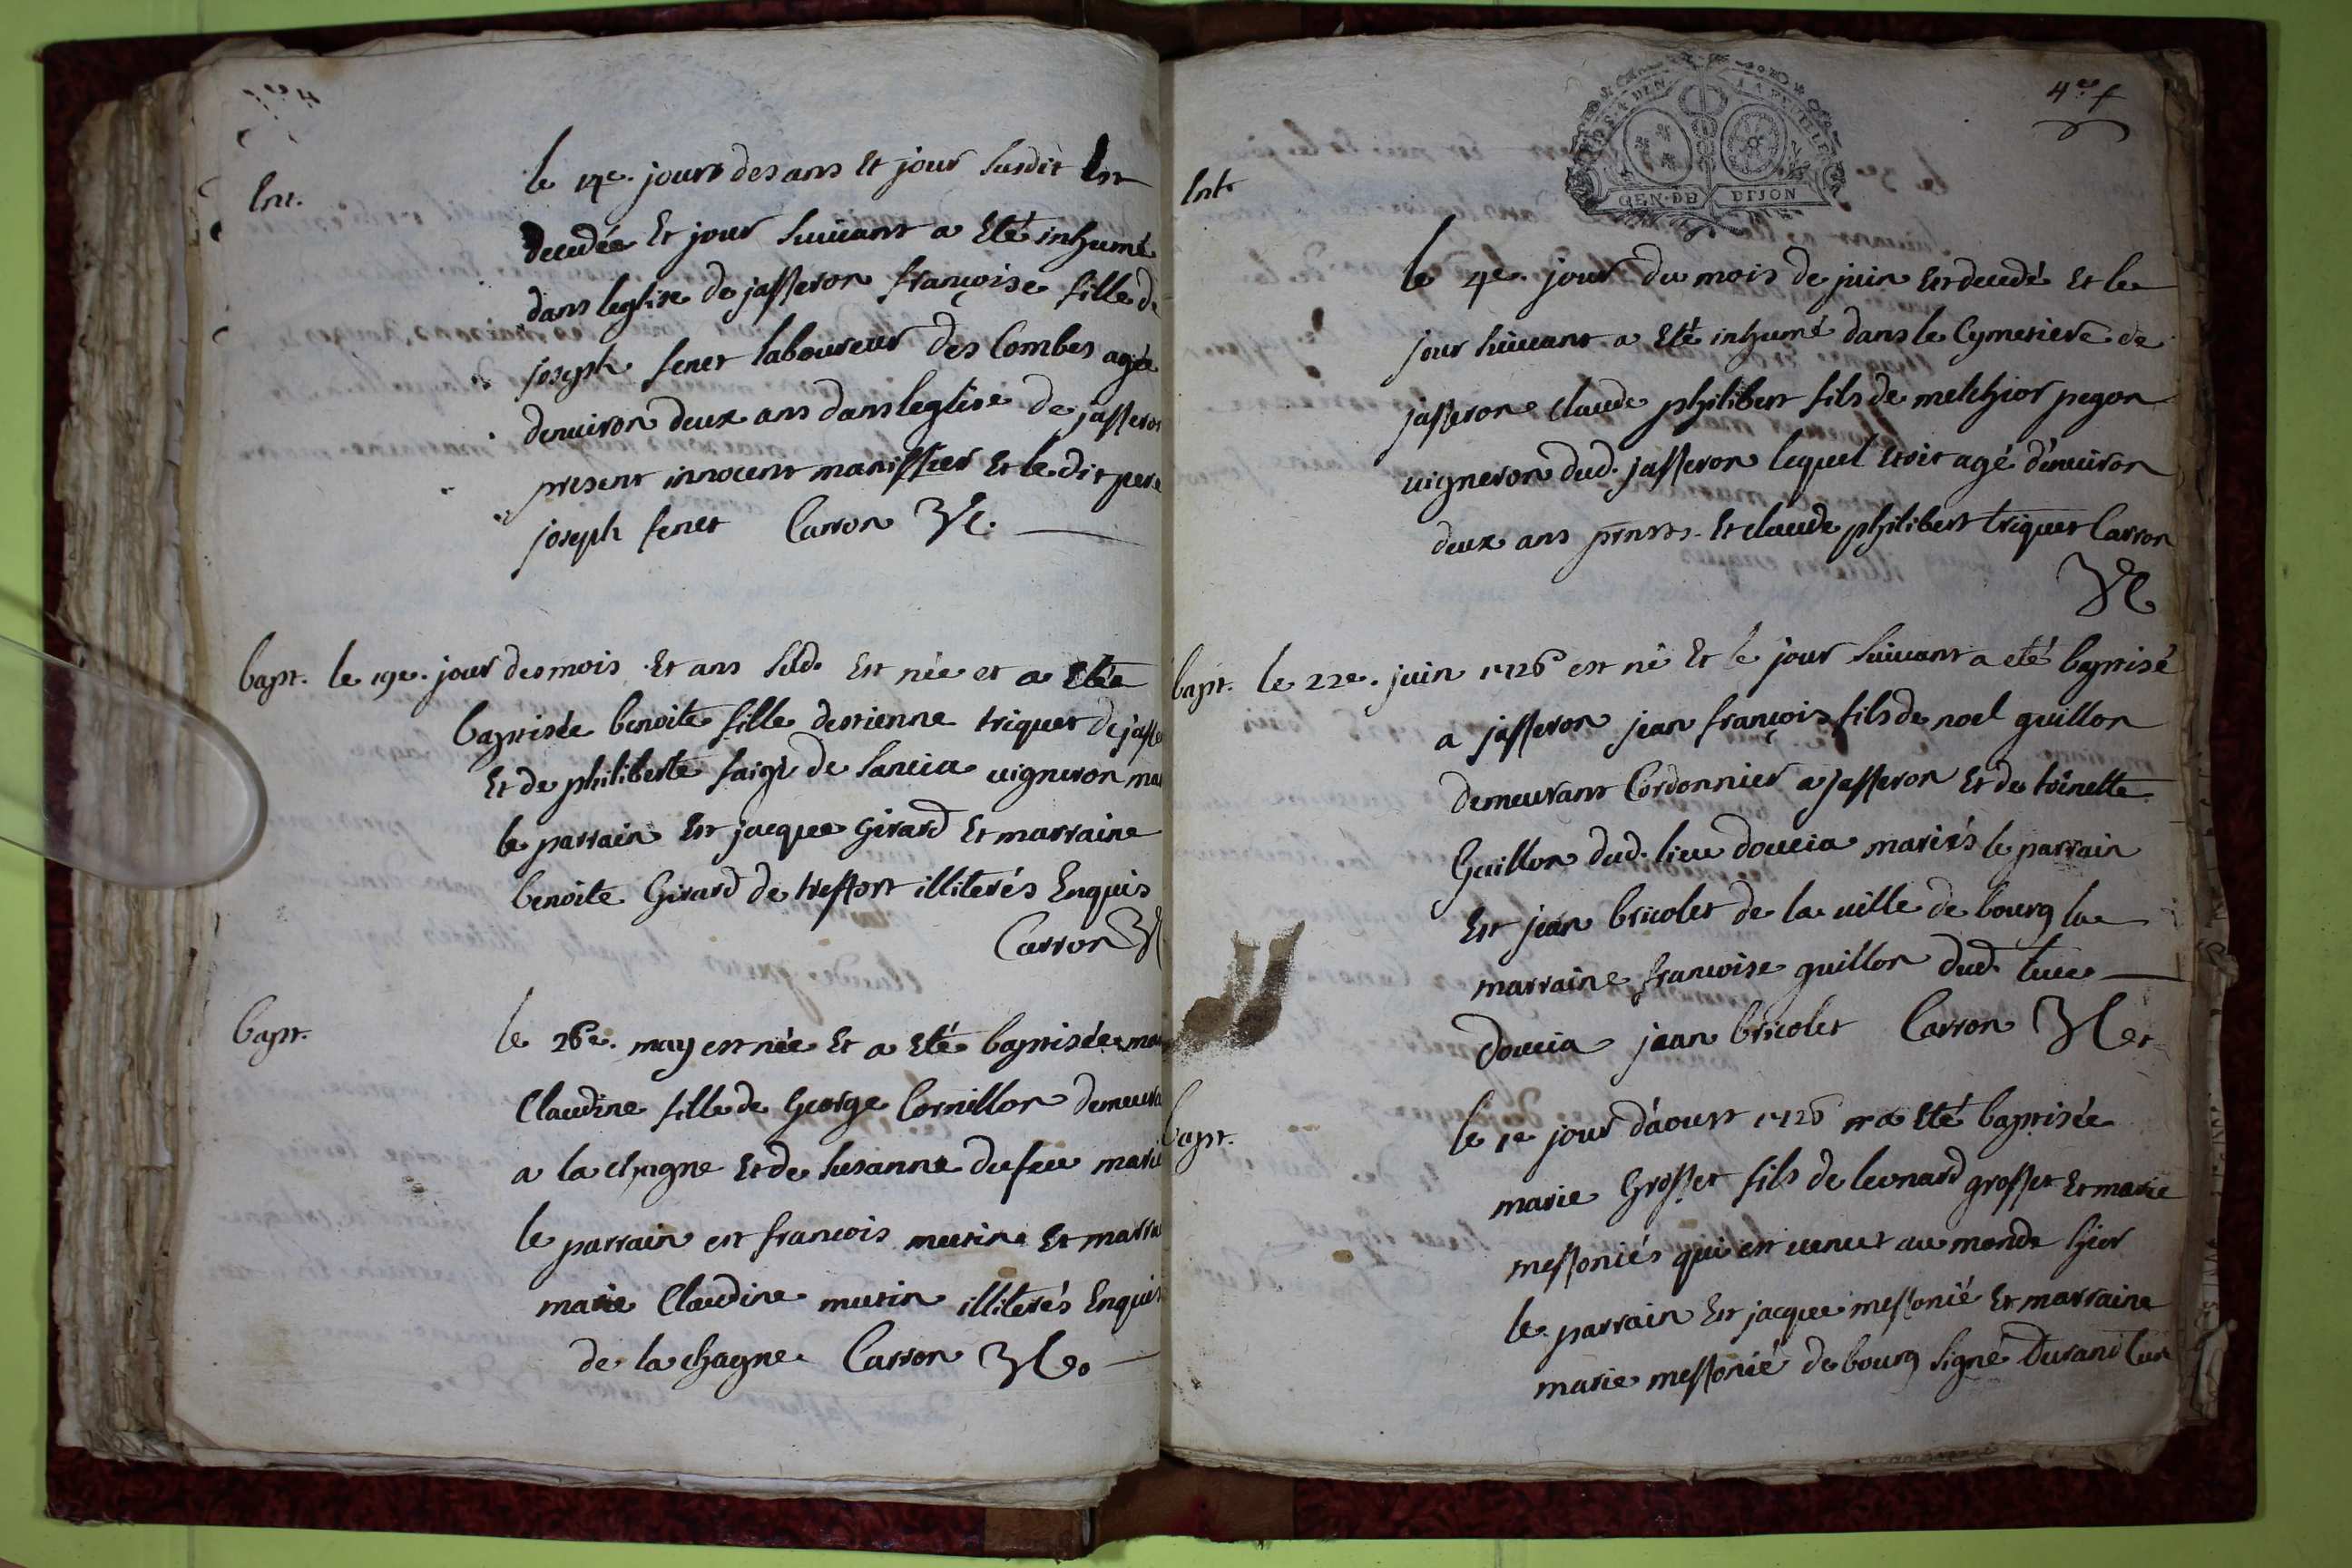 Ent.
le 14e. jour des ans Et jour susdit Est
decedée Et jour suivant a Eté inhumé
dans leglise de jasseron françoise fille de
joseph fenet laboureur des Combes agée
denuiron deux ans dans leglise de jasseron
present innocent manissier Et le dit pere
joseph fenet Carron Vic.
bapt. le 19e. jour des mois Et ans sud. Est née et a Etée
baptisée benoite fille destienne triquet de jasse
Et de philiberte faigi de sancia uigneron ma
le parrain Est jacque Girard Et marraine
benoite Girard de treffort illiterés Enquis
Carron
bapt.
le 26e. may est née Et a Eté baptisée ma
Claudine fille de George Cornillon demeura
a la chagne Et de susanne dufeu marie
le parrain est francois mutin Et marra
marie Claudine mutin illiterés Enquis
de la chagne Carron Vic.
4e. f
GEN. DE DIJON
Ent.
le 4e. jour du mois de juin Est decedé Et le
jour suiuant a Eté inhumé dans le Cymetiere de
jasseron claude philibert fils de melchior pegon
uigneron dud. jasseron lequel etoit agé d'enuiron
deux ans prnts. Et claude philibert triquet Carron
Vic
bapt. le 22e. juin 1726 est né Et le jour suiuant a eté baptisé
a jasseron jean françois fils de noel guillon
demeurant Cordonnier a jasseron Et de toinette
Guillon dud. lieu doucia mariés le parrain
Est jean bricolet de la uille de bourg la
marraine francoise guillon dud. lieu
doucia jean bricolet Carron Vic
bapt.
le 1e jour d'aoust 1726 a Eté baptisée
marie Grosset fils de leonard grosset Et marie
messoniés qui est uenut au monde hier
le parrain Est jacque messonié Et marraine
marie messonié de bourg signé Durand Curé